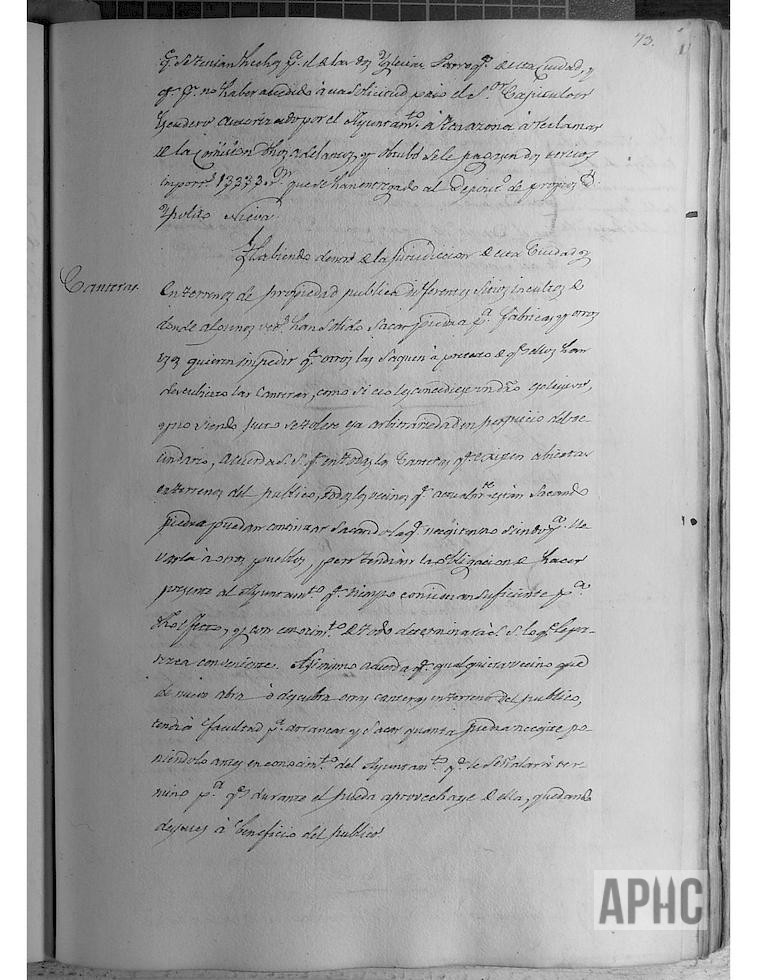 73.
q.e se tenian hechos p.a el de las dos Yglesias Parroq.s de esta Ciudad, y
q.e p.r no haber accedido à su solicitud paso el S.or Capitular
autorizado por el Ayuntam.to à Tarazona à reclamar
de la Comision y obtubo se le pagasen dos tercios
import.s 13333 r.s que se han entregado al Deposit.o de propios D.
Ypolito
Habiendo dentro de la jurisdiccion de esta Ciudad y
Canteras
en terrenos de propiedad publica diferentes sitios incultos de
donde algunos vec.s han solido sacar piedra p.a fabricas y otros
usos quieren impedir q.e otros las saquen à pretexto de q.e ellos han
descubierto las Canteras, como si eso les concediese un dro exclusivo,
y no siendo justo se tolere esa arbitrariedad en perjuicio del ve-
cindario, acuerda S. S. q.e en todas las Canteras q.e existen abiertas
en terrenos del publico, todos los vecinos q.e actualm.te estan sacando
piedra puedan continuar sacando la q.e necesiten no siendo p.a lle
varla à otros pueblos, pero tendràn la obligacion de hacer
presente al Ayuntam.to q.e tiempo consideran suficiente p.a
dho efecto, y con conocim.to de todo determinarà el S. lo q.e le pa-
rezca conveniente. Asimismo acuerda q.e qualquiera vecino que
de nuevo abra ò descubra otras canteras en terreno del publico,
tendrà facultad p.a arrancar y sacar quanta piedra necesite po-
niendolo antes en conocim.to del Ayuntam.to q.e le señalarà ter-
mino p.a q.e durante el pueda aprovecharse de ella, quedando
despues à beneficio del publico.
APHC